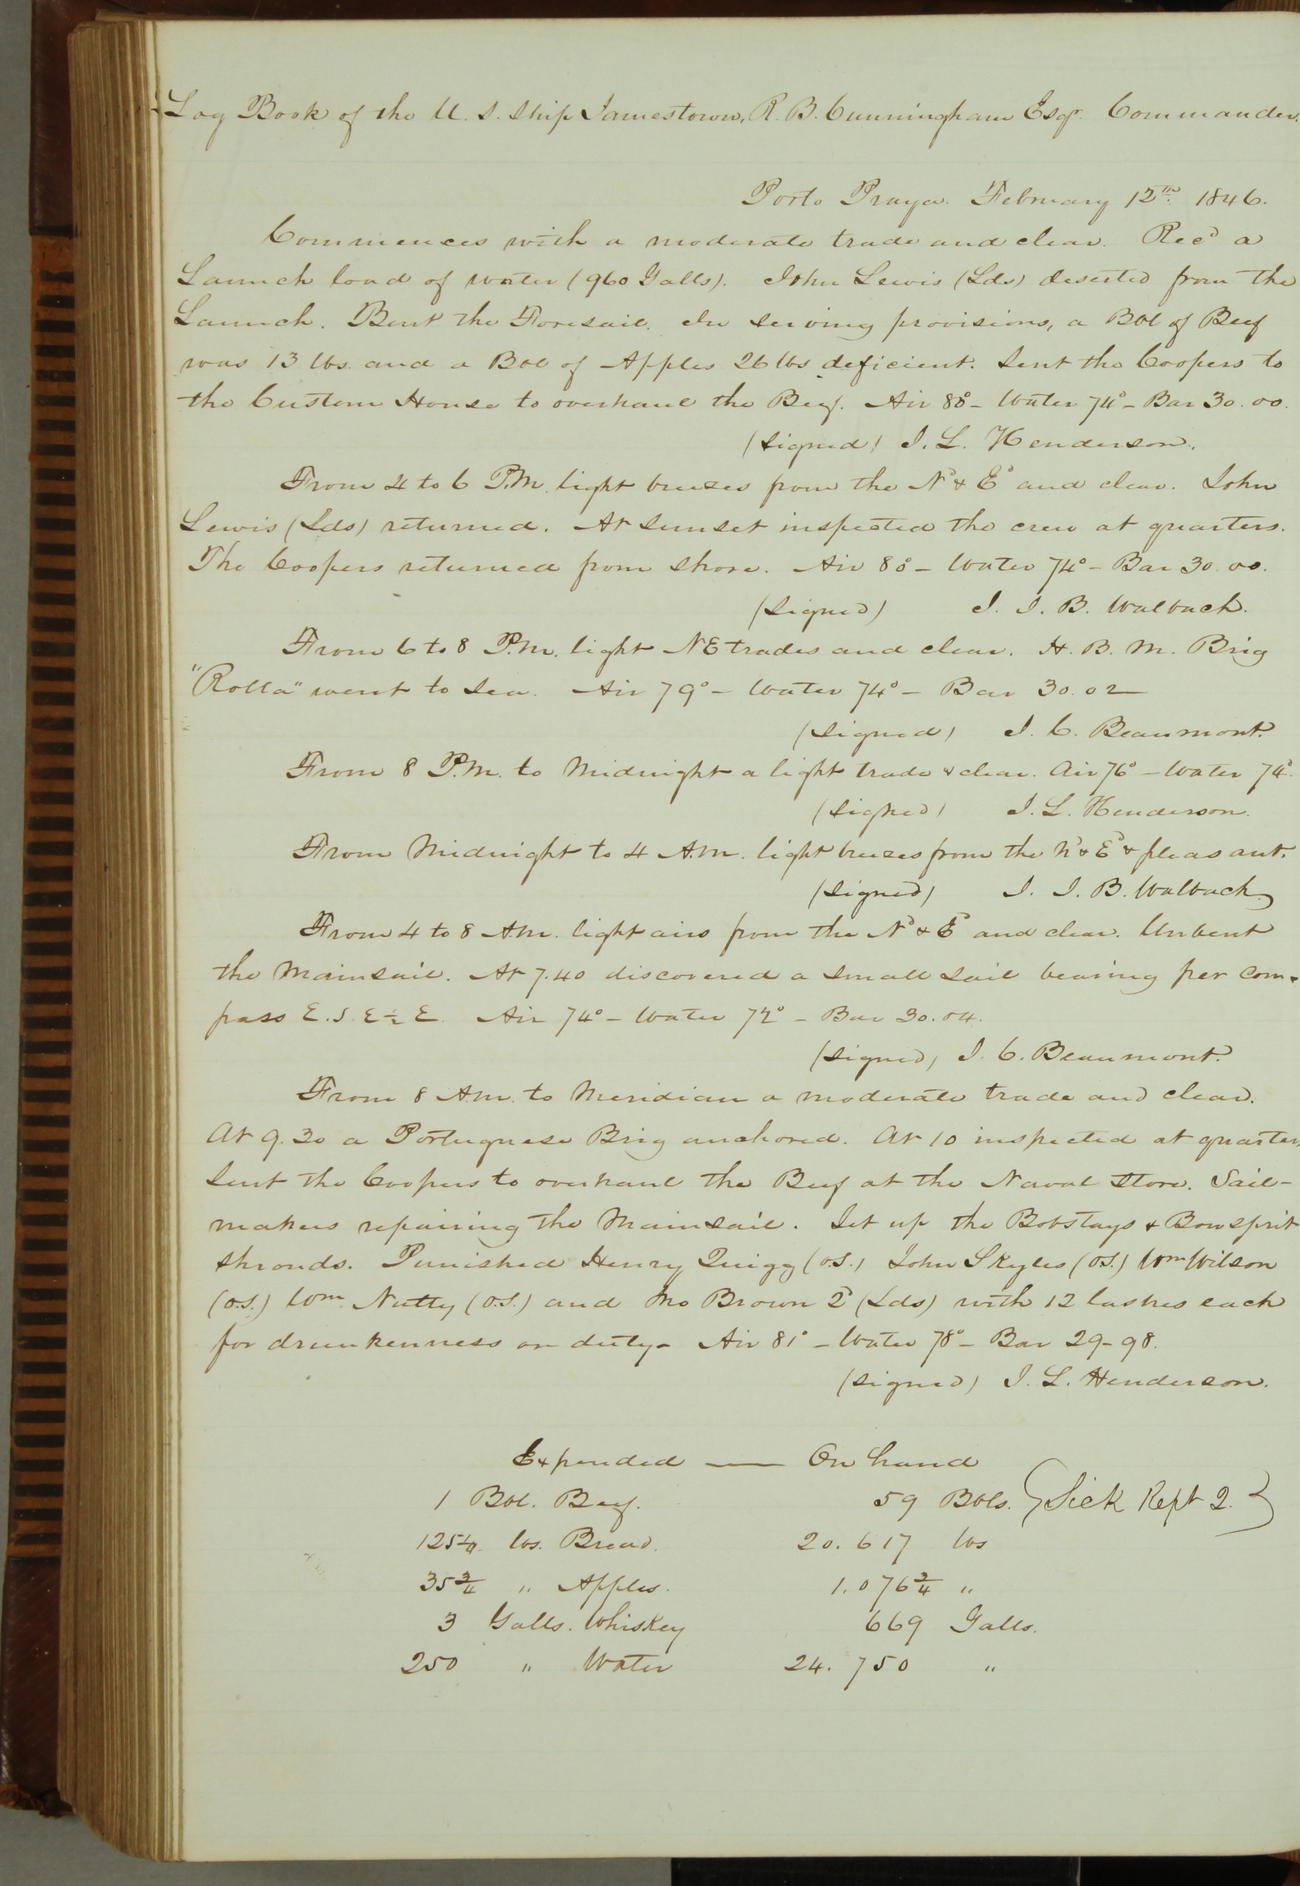 Log Book of the U. S. Ship Jamestown, R. B. Cunningham Esqr. Commander.
Porto Praya. February 12th. 1846.
Commences with a moderate trade and clear. Recd a
Launch load of water (960 Galls). John Lewis (Lds) deserted from the
Launch. Bent the Foresail. In serving provisions, a Bbl of Beef
was 13 lbs. and a Bbl of Apples 26 lbs deficient. Sent the Coopers to
the Custom House to overhaul the Beef. Air 80° – Water 74° – Bar 30.00.
(Signed) J. L. Henderson.
From 4 to 6 P.M. light breezes from the Nd & Ed and clear. John
Lewis (Lds) returned. At Sunset inspected the crew at quarters.
The Coopers returned from Shore. Air 80° – Water 74° – Bar 30.00.
(Signed) J. J. B. Walbach.
From 6 to 8 P.M. light NE trades and clear. H. B. M. Brig
"Rolla" went to Sea. Air 79° – Water 74° – Bar 30.02
(Signed) J. C. Beaumont.
From 8 P.M. to Midnight a light trade & clear. Air 76° – Water 74°.
(Signed) J. L. Henderson.
From Midnight to 4 A.M. light breezes from the Nd & Ed & pleasant.
(Signed) J. J. B. Walbach
From 4 to 8 A.M. light airs from the Nd & Ed and clear. Unbent
the Mainsail. At 7.40 discovered a small sail bearing per com-
pass E. S. E ½ E. Air 74° – Water 72° – Bar 30.04.
(Signed) J. C. Beaumont.
From 8 A.M. to Meridian a moderate trade and clear.
At 9.30 a Portuguese Brig anchored. At 10 inspected at quarters,
Sent the Coopers to overhaul the Beef at the Naval Store. Sail-
makers repairing the Mainsail. Set up the Bobstays & Bowsprit
shrouds. Punished Henry Quigg (O.S.) John Skyles (O.S.) Wm Wilson
(O.S.) Wm. Nutty (O.S.) and Jno Brown 2d (Lds) with 12 lashes each
for drunkenness on duty – Air 81° – Water 78° – Bar 29–98.
(Signed) J. L. Henderson.
Expended — On hand
1 Bbl. Beef. 59 Bbls. {Sick Rept 2.}
125¼ lbs. Bread. 20.617 lbs
35¾ " Apples. 1.076¾ "
3 Galls. Whiskey 669 Galls.
250 " Water 24.750 "